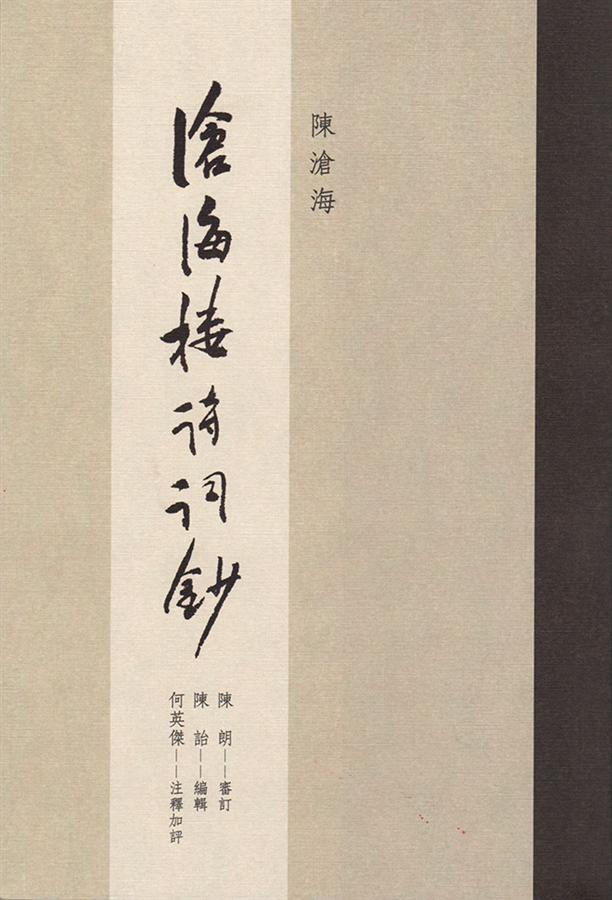 陳滄海
滄海楼诗词鈔
陳　朗——審訂
陳　詒——編輯
何英傑——注釋加評